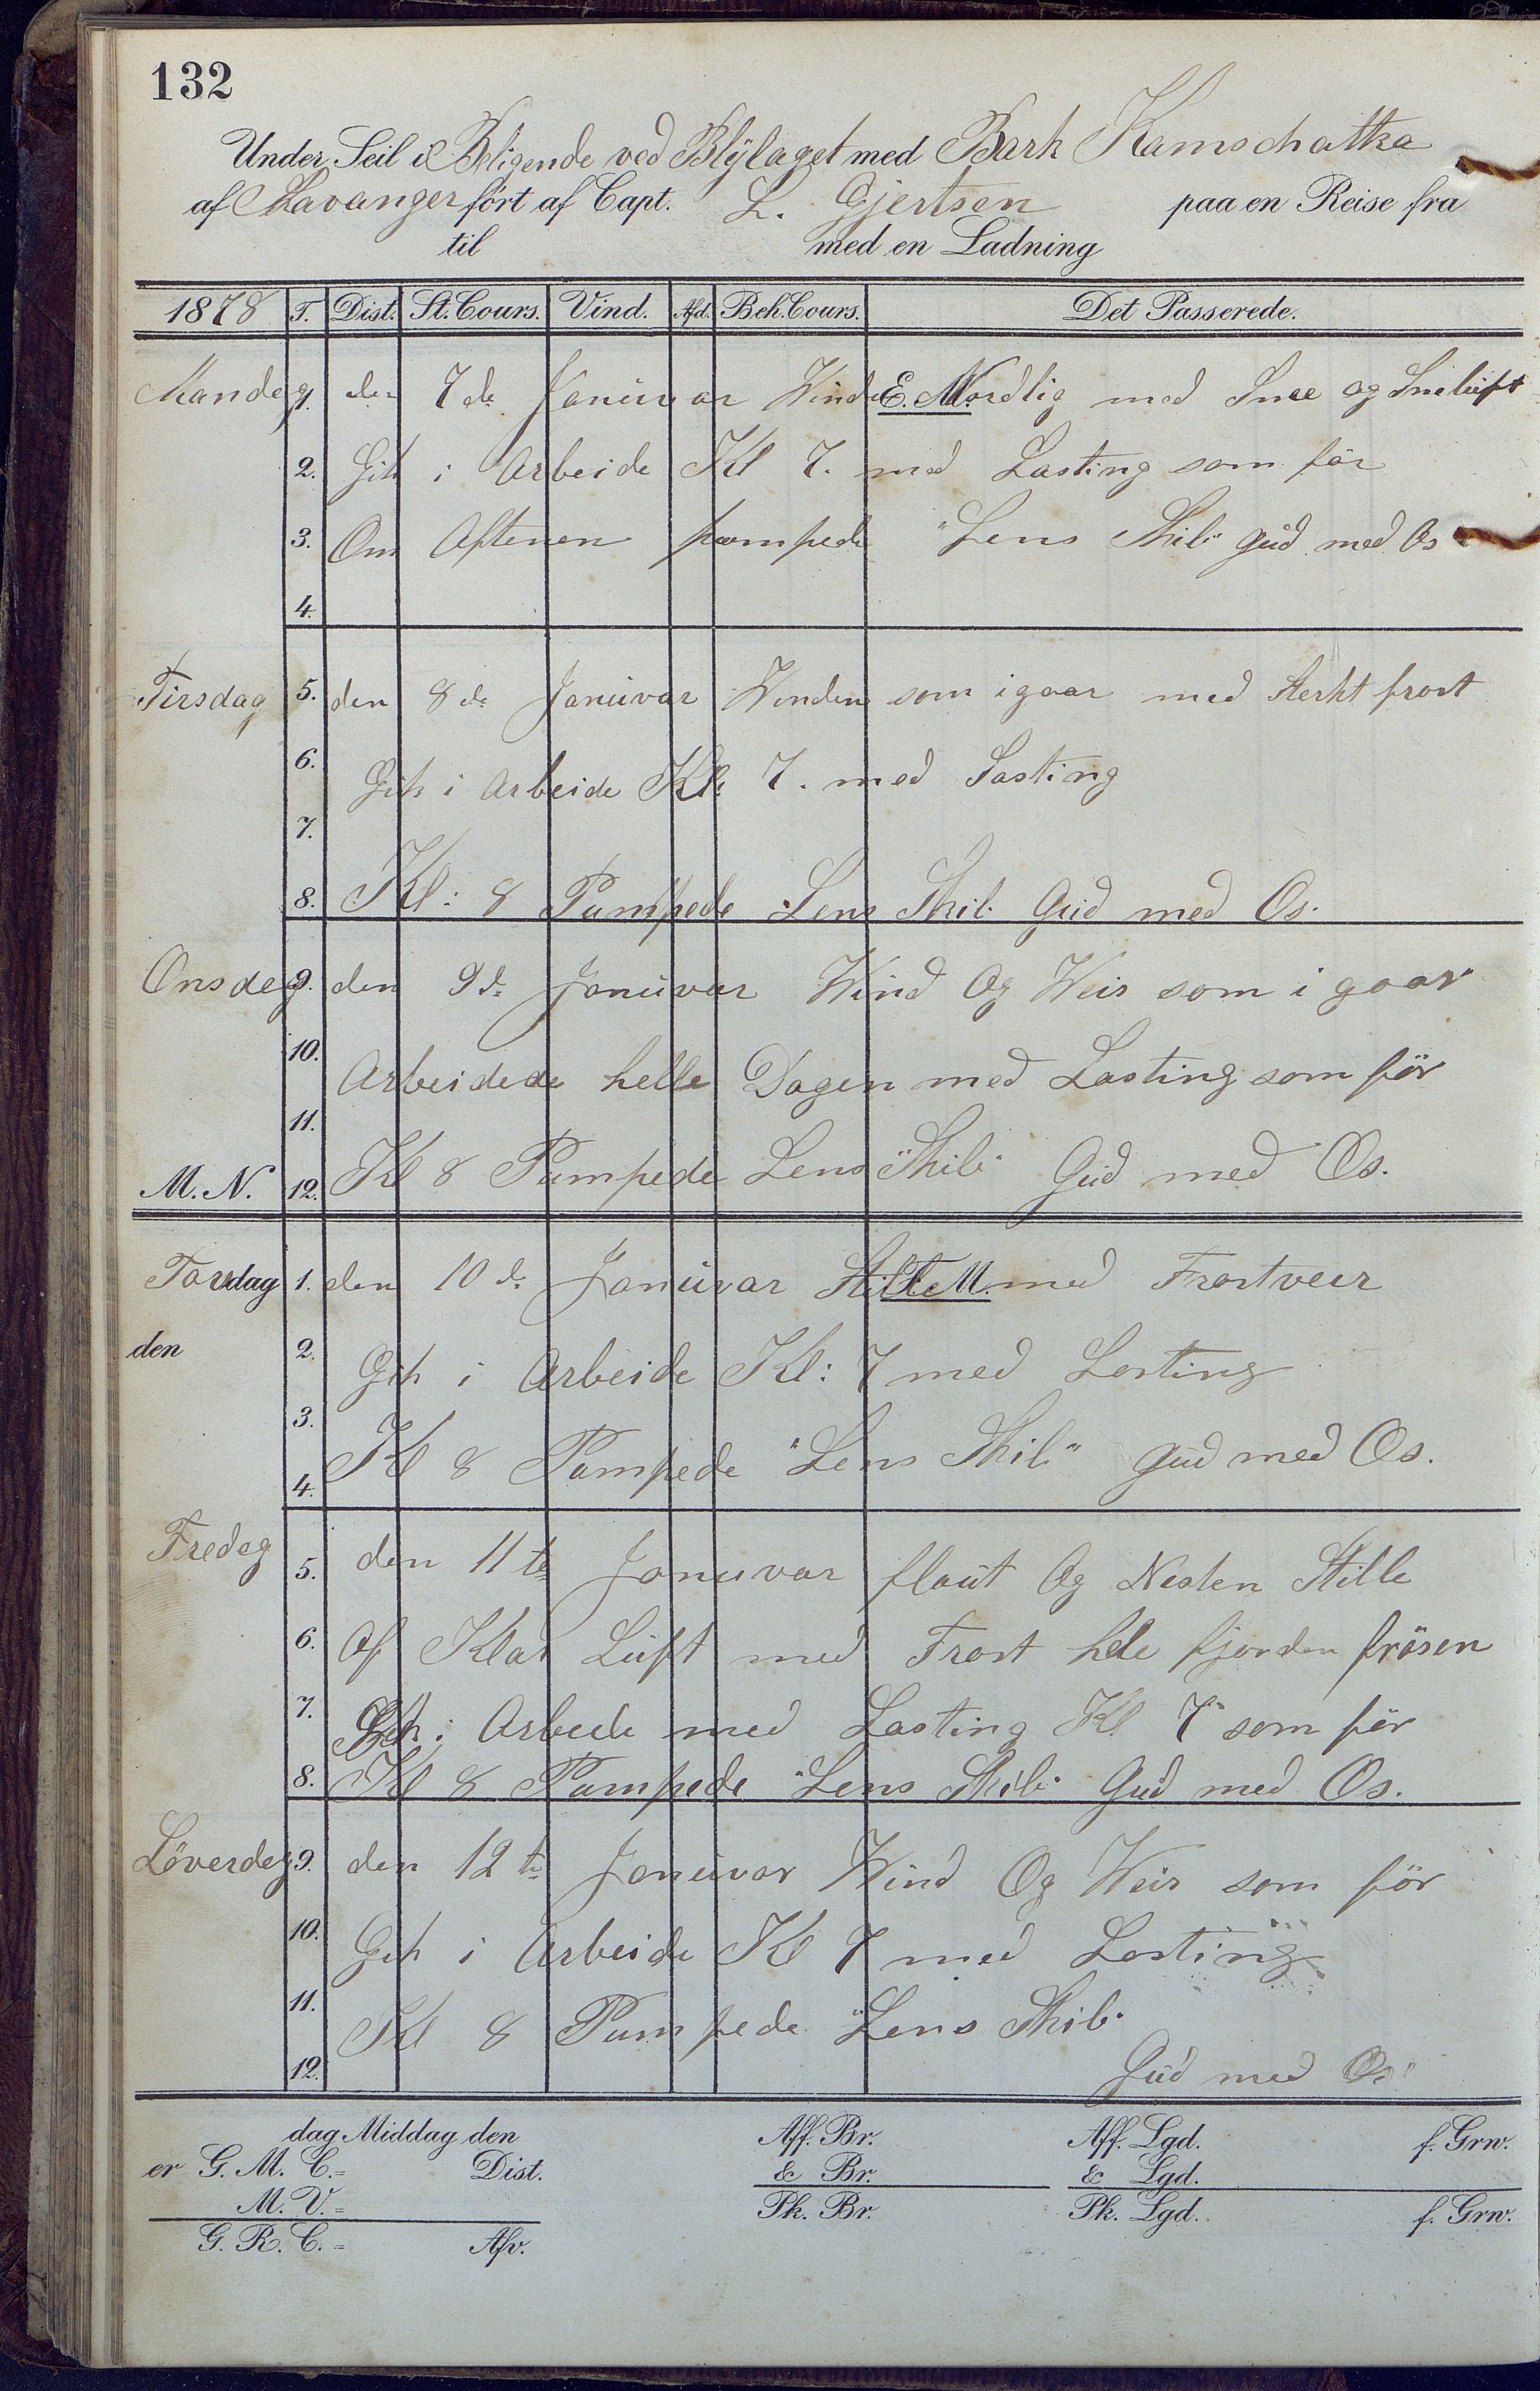 132
Under Seil i Beligende ved Blÿlaget med Bark Kamschatka
af Stavanger fört af Capt. L. Gjertsen paa en Reise fra
til med en Ladning
1878 T. Dist. St. Cours. Vind. Afd. Beh. Cours. Det Passerede.
Mandag 1. den 7de Januvar Winden E.M. Nordlig med Snee og Sneluft
2. Gik i Arbeide Kl 7. med Lasting som för
3. Om Aftenen pompede "Lens Skib" Gud med Os
4.
Tirsdag 5. den 8de Januvar Winden som igaar med Sterkt frost
6. Gik i Arbeide Kl: 7. med Lasting
7.
8. Kl: 8 Pumpede Lens Skib. Gud med Os.
Onsdag 9. den 9de Januvar Wind Og Weir som i gaar
10. Arbeidede helle Dagen med Lasting som för
11.
M. N. 12. Kl 8 Pumpede Lens "Skib" Gud med Os.
Torsdag 1. den 10de Januvar Stille E.M. med Frostveer
den 2. Gik i Arbeide Kl: 7 med Lasting
3.
4. Kl 8 Pumpede "Lens Skib" Gud med Os.
Fredag 5. den 11te Januvar flaut Og Nesten Stille
6. Af Klar Luft med Frost hele fjorden frösen
7. Gik i Arbeede med Lasting Kl 7 som för
8. Kl 8 Pumpede "Lens Skib" Gud med Os.
Löverdag 9. den 12te Januvar Wind Og Weir som för
10. Gik i Arbeide Kl 7 med Lasting
11. Kl 8 Pumpede "Lens Skib"
12. Gud med Os
dag Middag den Aff. Br. Aff. Lgd. f. Grw.
er G. M. C.= Dist. & Br. & Lgd.
M. V.= Pk. Br. Pk. Lgd. f. Grw.
G. R. C.= Afv.